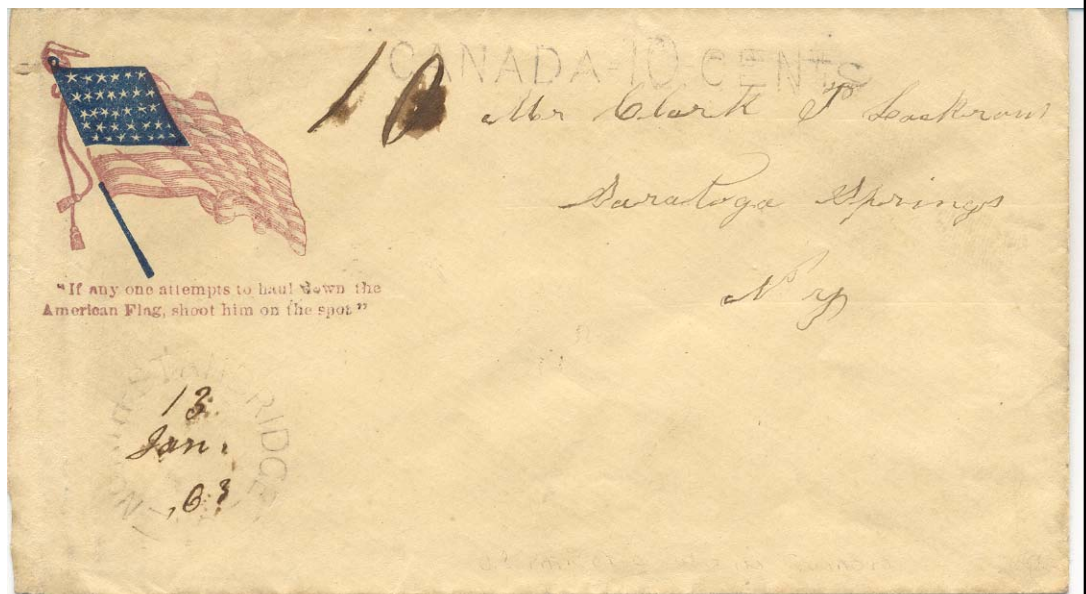 CANADA-10-CENTS
10
Mr Clark T
Saratoga Springs
N Y
"If any one attempts to haul down the
American Flag, shoot him on the spot"
13
Jan.
63